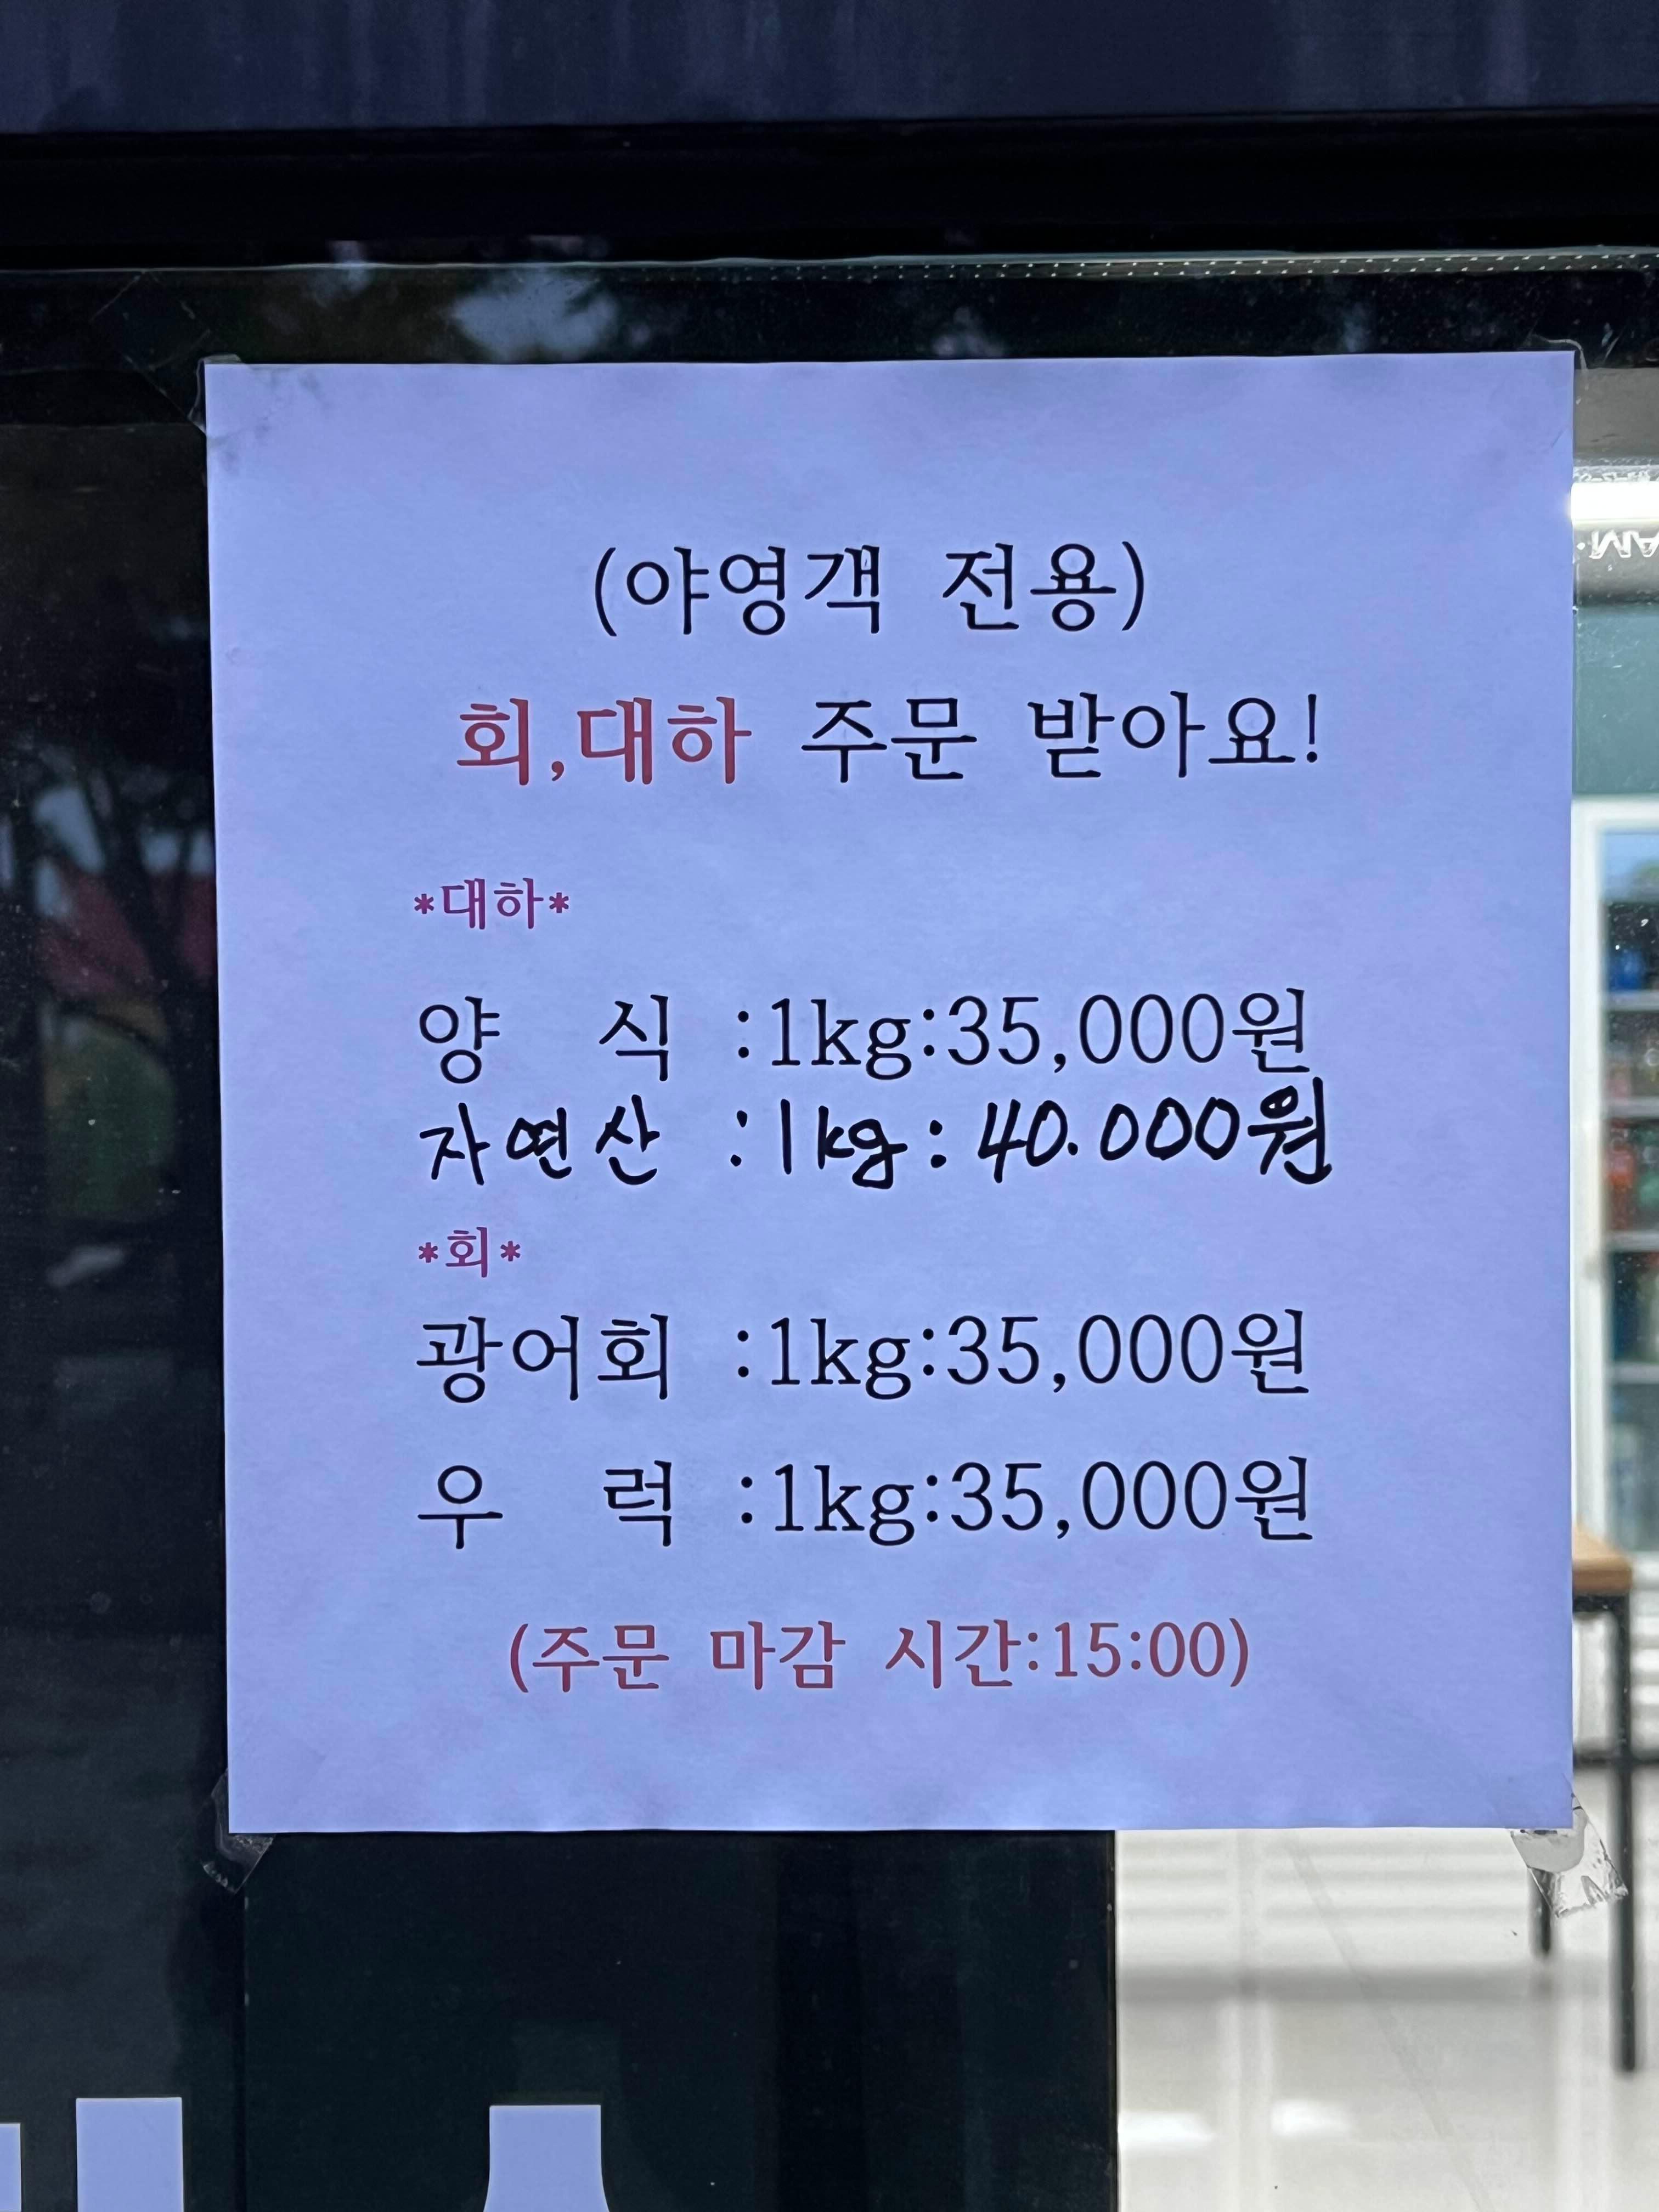 (야영객 전용)
회,대하 주문 받아요!
*대하*
양 식 :1kg:35,000원
자연산 :1kg:40.000원
*회*
광어회 :1kg:35,000원
우 럭 :1kg:35,000원
(주문 마감 시간:15:00)